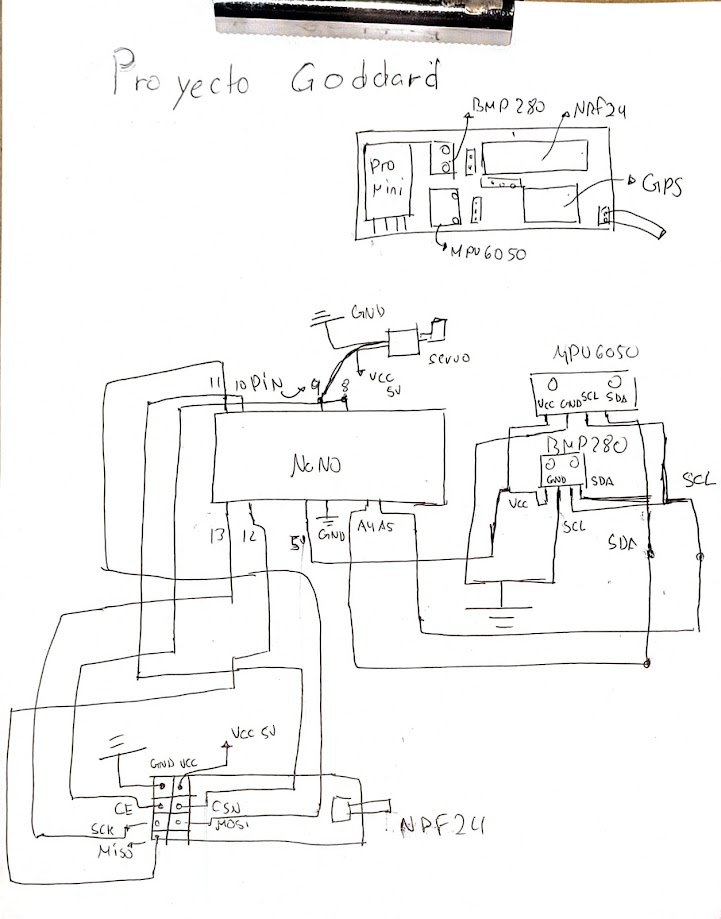 Proyecto Goddard
BMP280
NRF24
Pro
Mini
GPS
MPU6050
GND
servo
VCC
5V
11
10
PIN
9
8
NANO
13
12
5V
GND
A4 A5
MPU6050
VCC GND SCL SDA
BMP280
GND
SDA
VCC
SCL
SCL
SDA
VCC 5V
GND VCC
CE
CSN
SCK
MOSI
MISO
NRF24